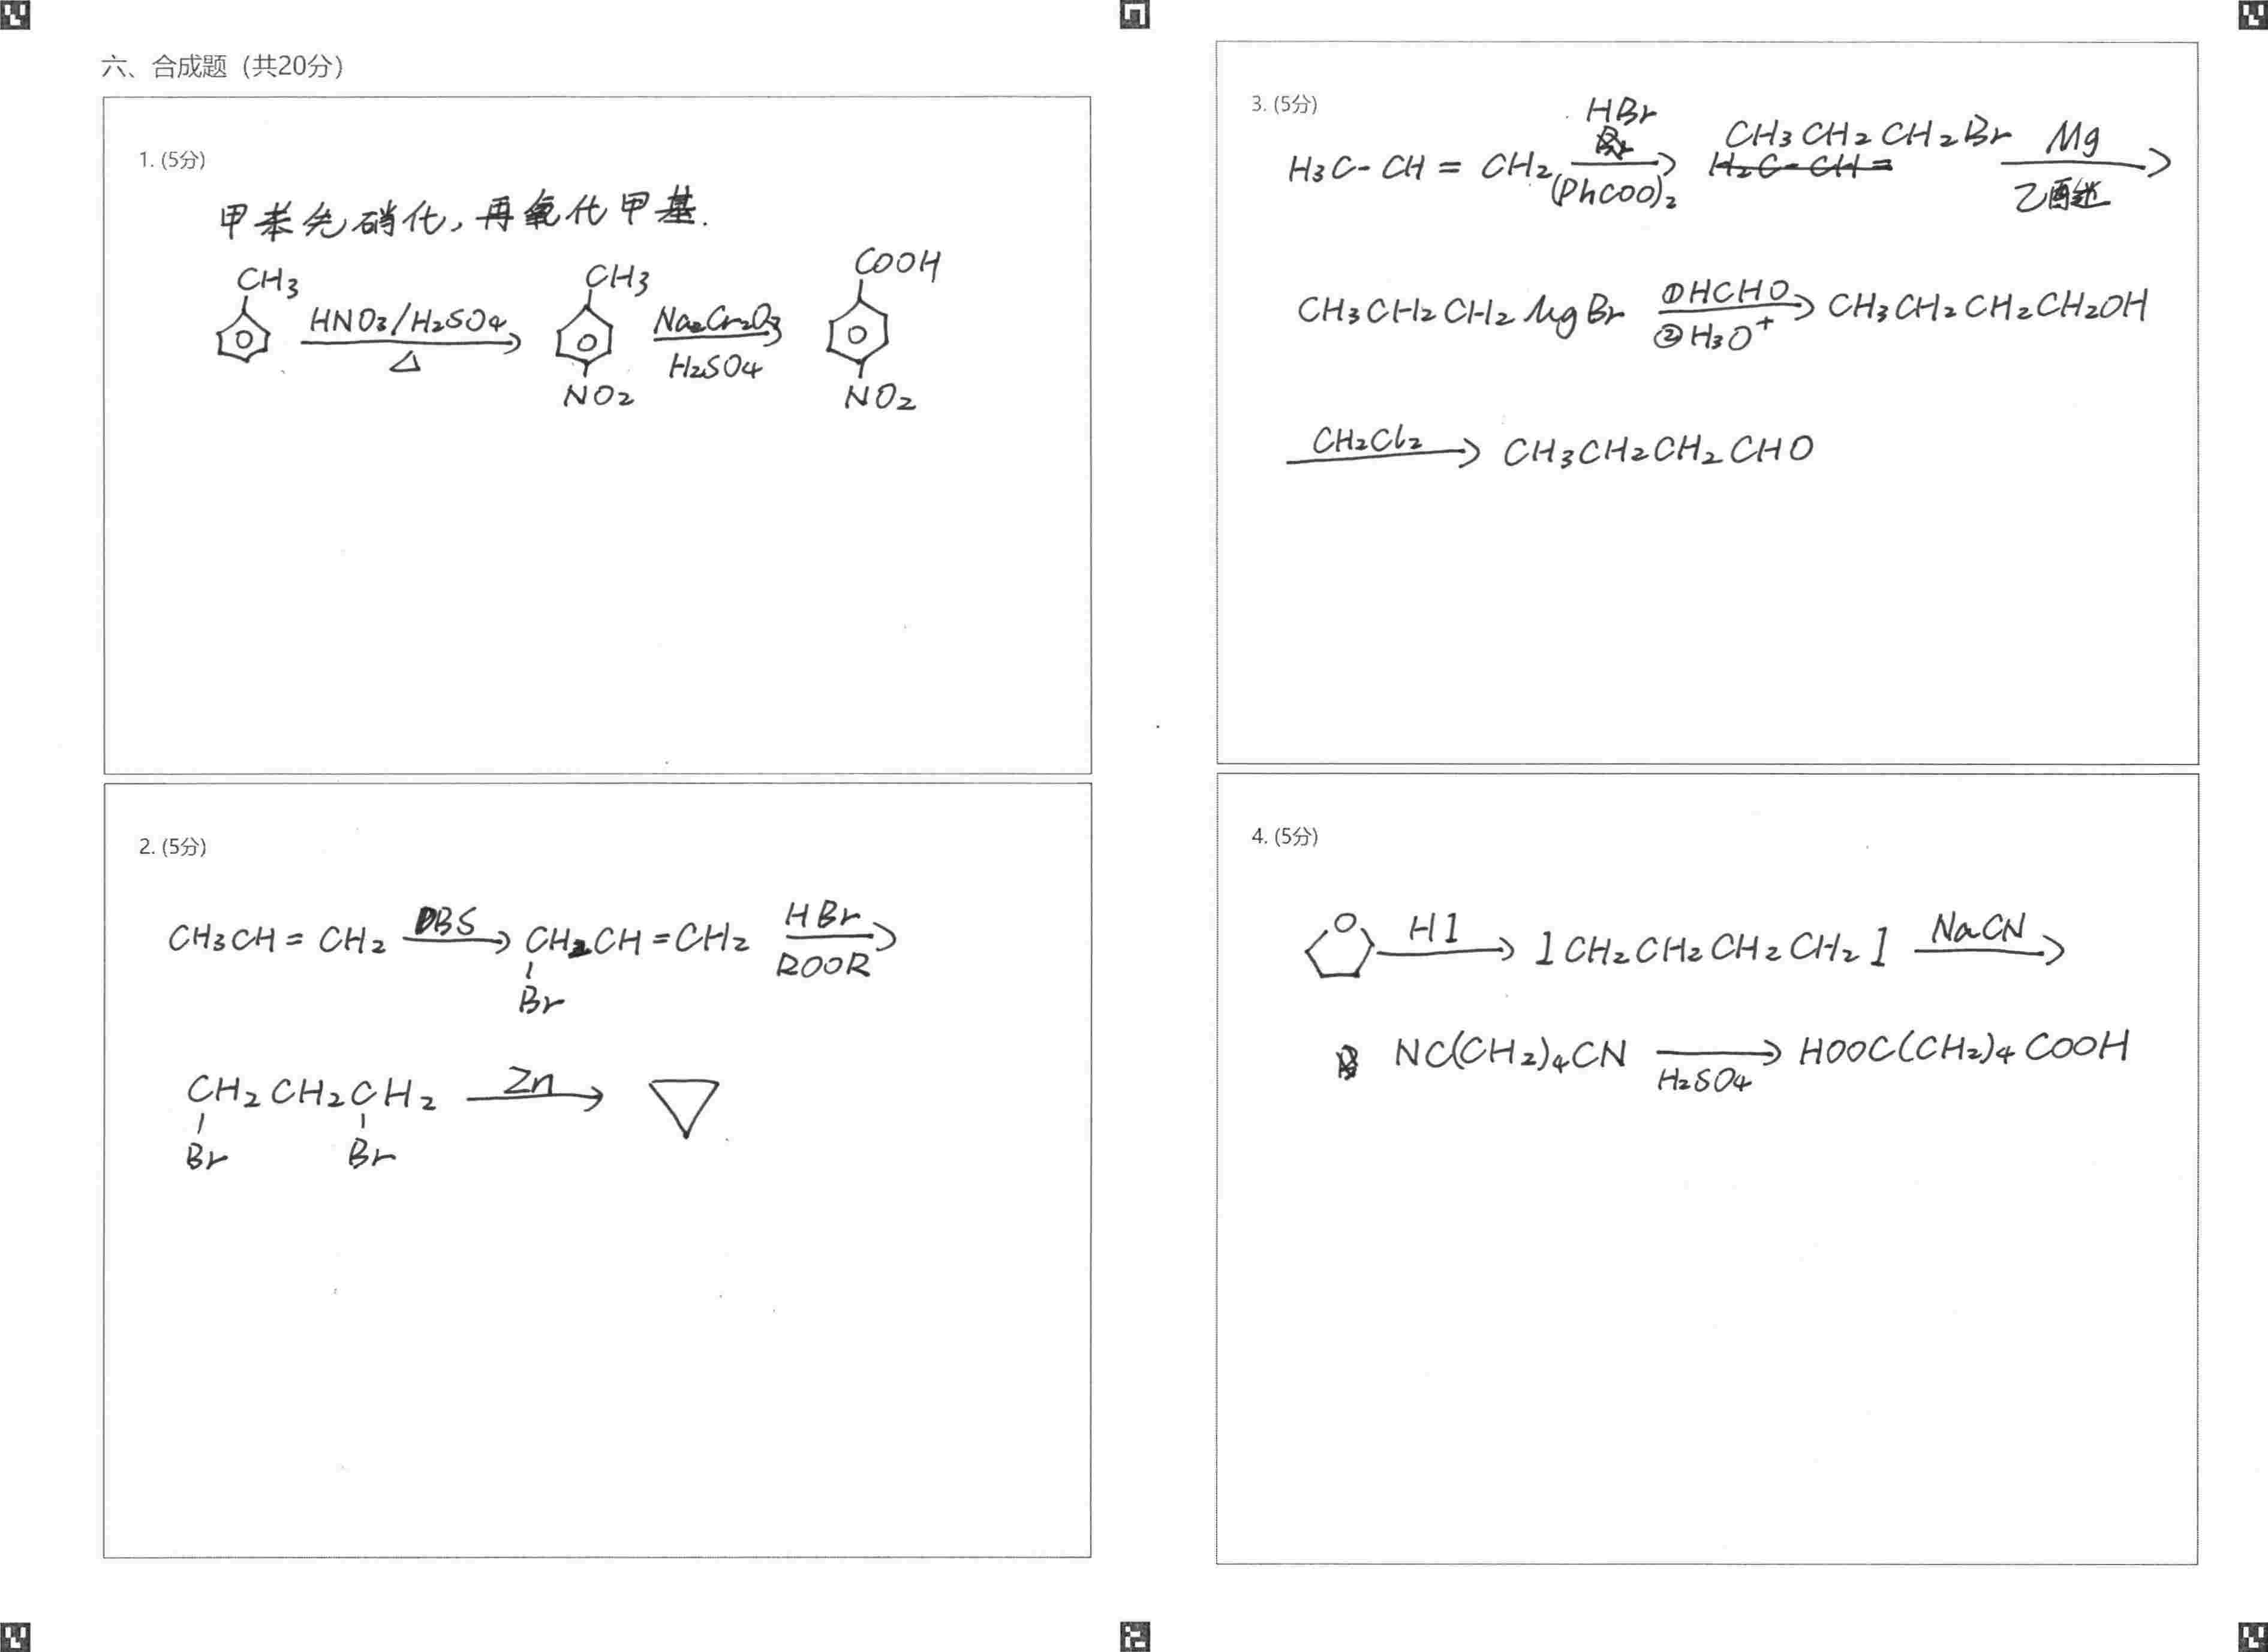 六、合成题（共20分）
1. (5分)
甲苯先硝化，再氧化甲基.
CH3 HNO3/H2SO4 △ CH3 NO2 Na2Cr2O3 H2SO4 COOH NO2
2. (5分)
CH3CH=CH2 DBS CH2CH=CH2 Br HBr ROOR
CH2CH2CH2 Br Br Zn
3. (5分)
H3C-CH=CH2 HBr (PhCOO)2 CH3CH2CH2Br H2C-CH= Mg 乙醚
CH3CH2CH2MgBr ①HCHO ②H3O+ CH3CH2CH2CH2OH
CH2Cl2 CH3CH2CH2CHO
4. (5分)
O HI ICH2CH2CH2CH2I NaCN
NC(CH2)4CN H2SO4 HOOC(CH2)4COOH